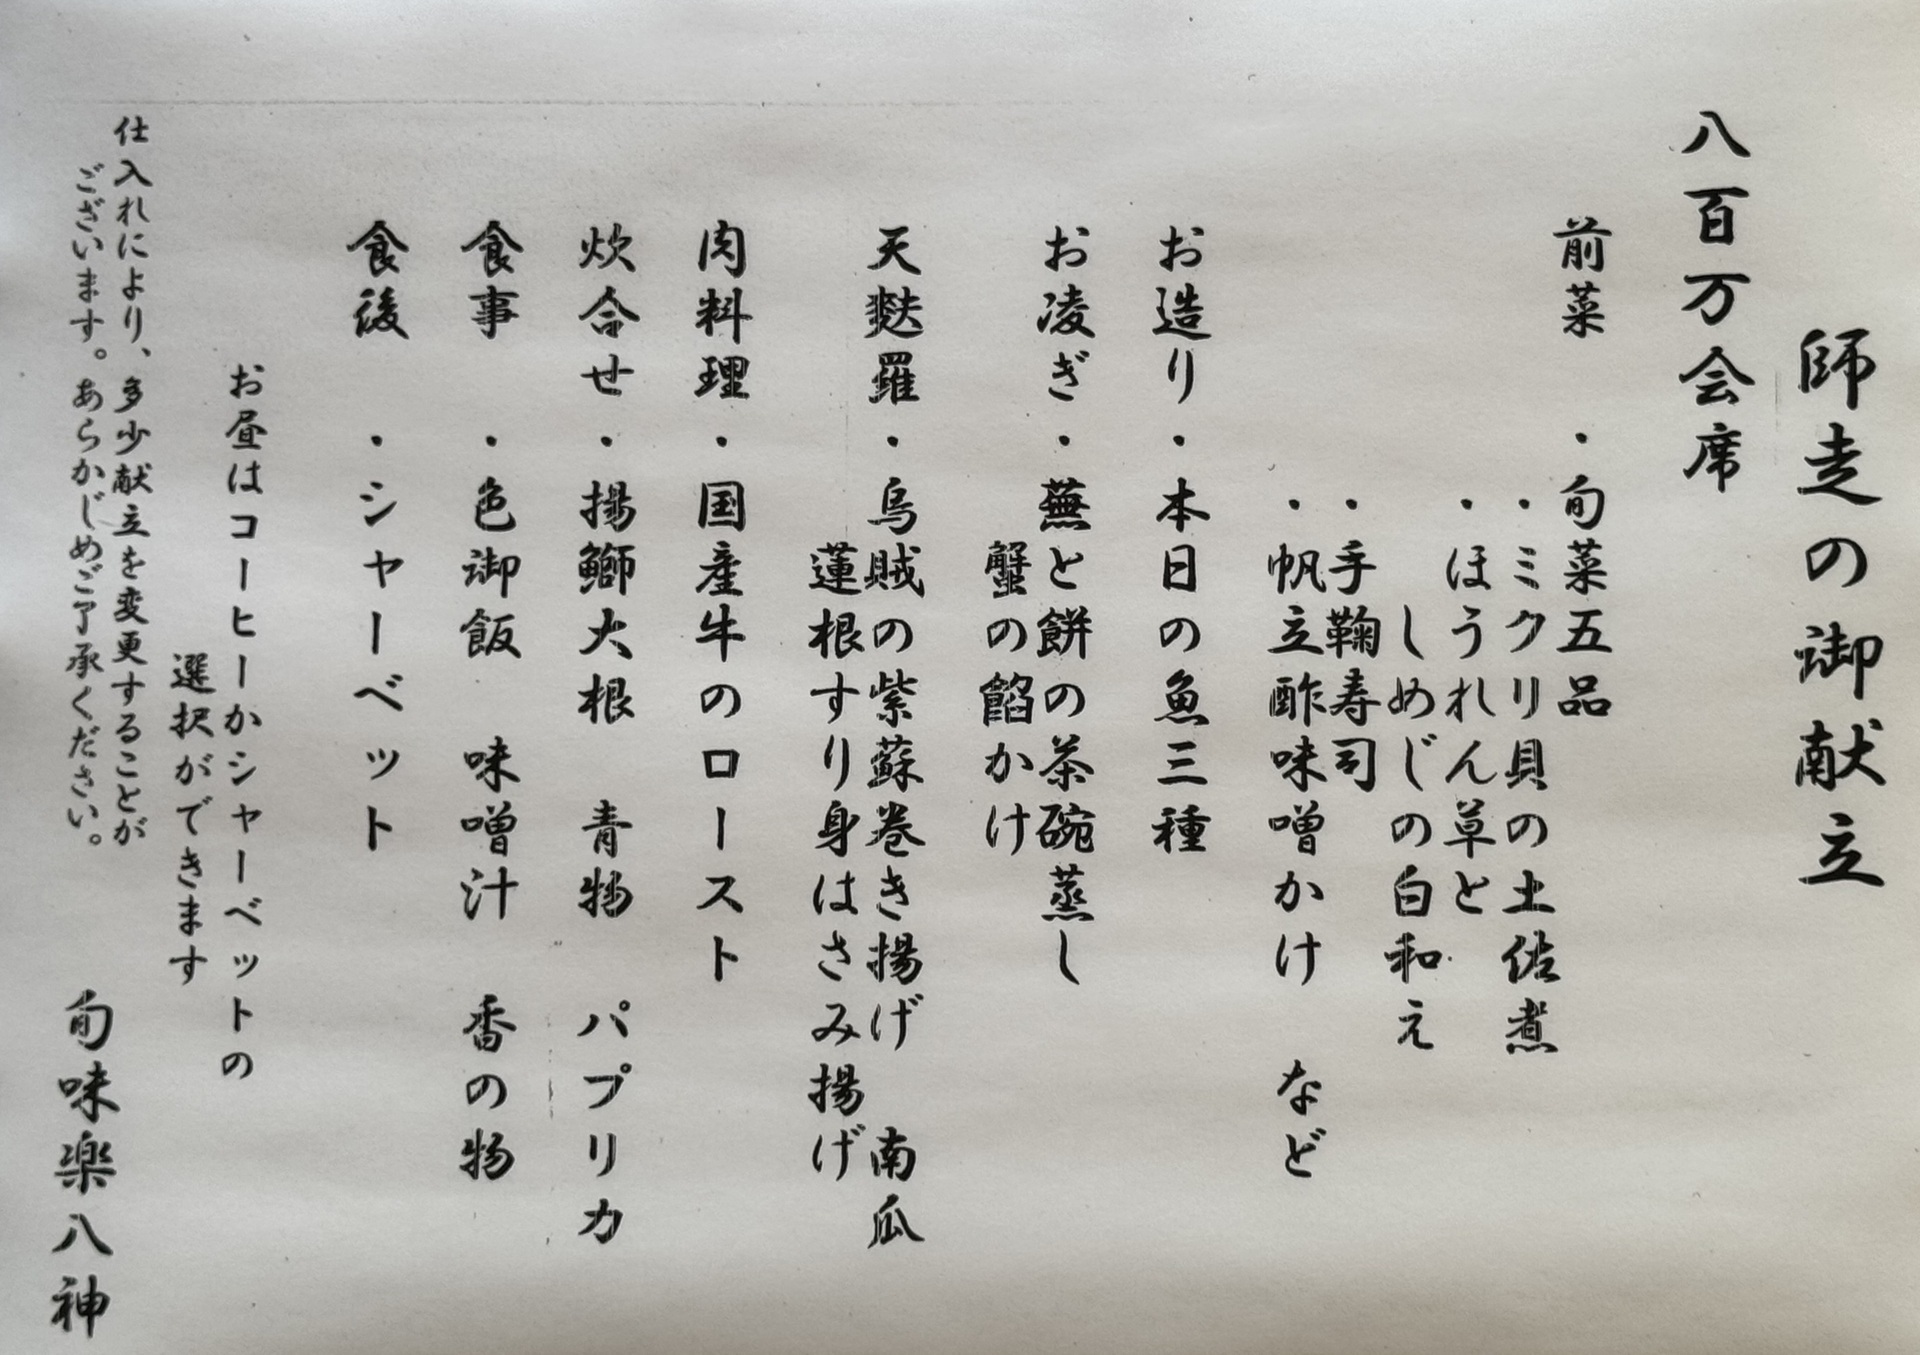 師走の御献立
八百万会席
前菜 ・旬菜五品
・ミクリ貝の土佐煮
・ほうれん草と
しめじの白和え
・手鞠寿司
・帆立酢味噌かけ など
お造り・本日の魚三種
お凌ぎ・蕪と餅の茶碗蒸し
蟹の餡かけ
天麩羅・烏賊の紫蘇巻き揚げ 南瓜
蓮根すり身はさみ揚げ
肉料理・国産牛のロースト
炊合せ・揚鰤大根 青物 パプリカ
食事 ・色御飯 味噌汁 香の物
食後 ・シャーベット
お昼はコーヒーかシャーベットの
選択ができます
仕入れにより、多少献立を変更することが
ございます。あらかじめご了承ください。
旬味楽八神